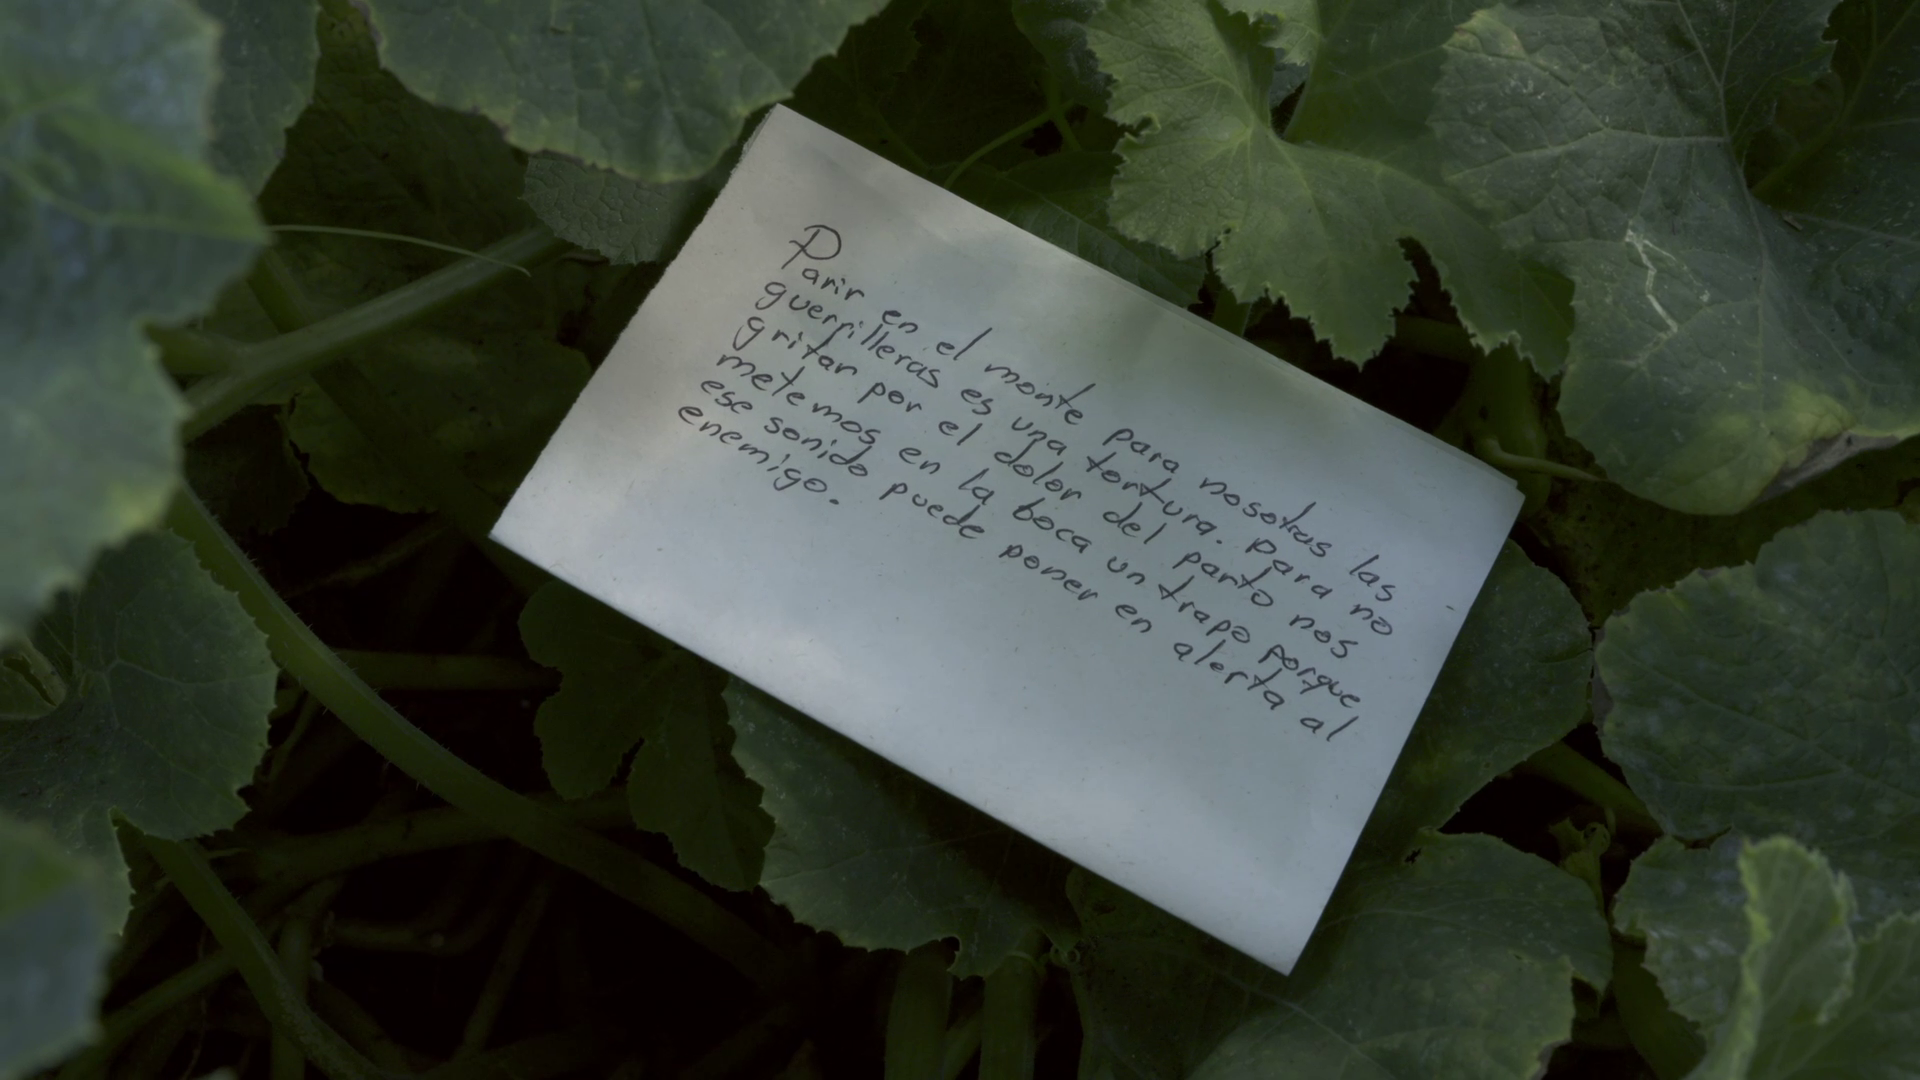 Parir en el monte para nosotras las
guerrilleras es una tortura. para no
gritar por el dolor del parto nos
metemos en la boca un trapo porque
ese sonido puede poner en alerta al
enemigo.